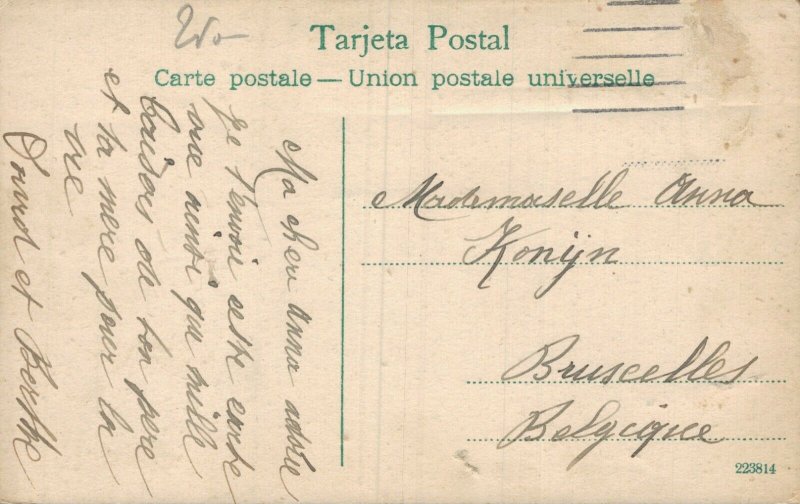 Tarjeta Postal
Carte postale — Union postale universelle
Ma chere Anna adorée
Je t'envoi cette carte
vue ainsi que mille
baisés de ton pere
et ta mere pour la
vie
et Berthe
Mademaselle Anna
Konijn
Bruscelles
Belgique
223814